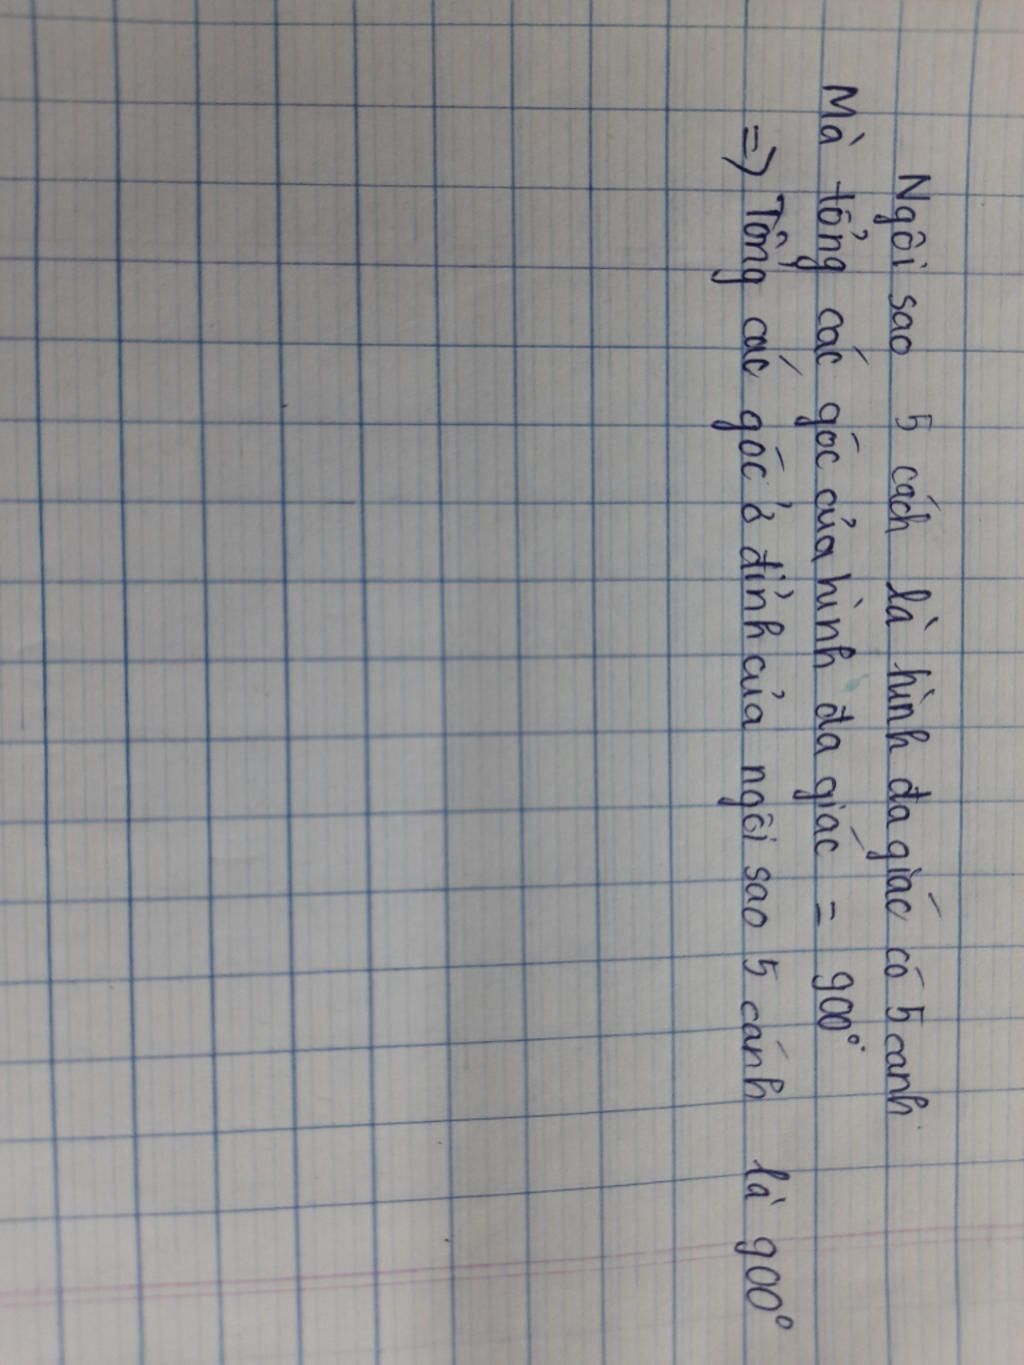 Ngôi sao 5 cách là hình đa giác có 5 canh
Mà tổng các góc của hình đa giác = 900°
=> Tổng các góc ở đỉnh của ngôi sao 5 cánh là 900°